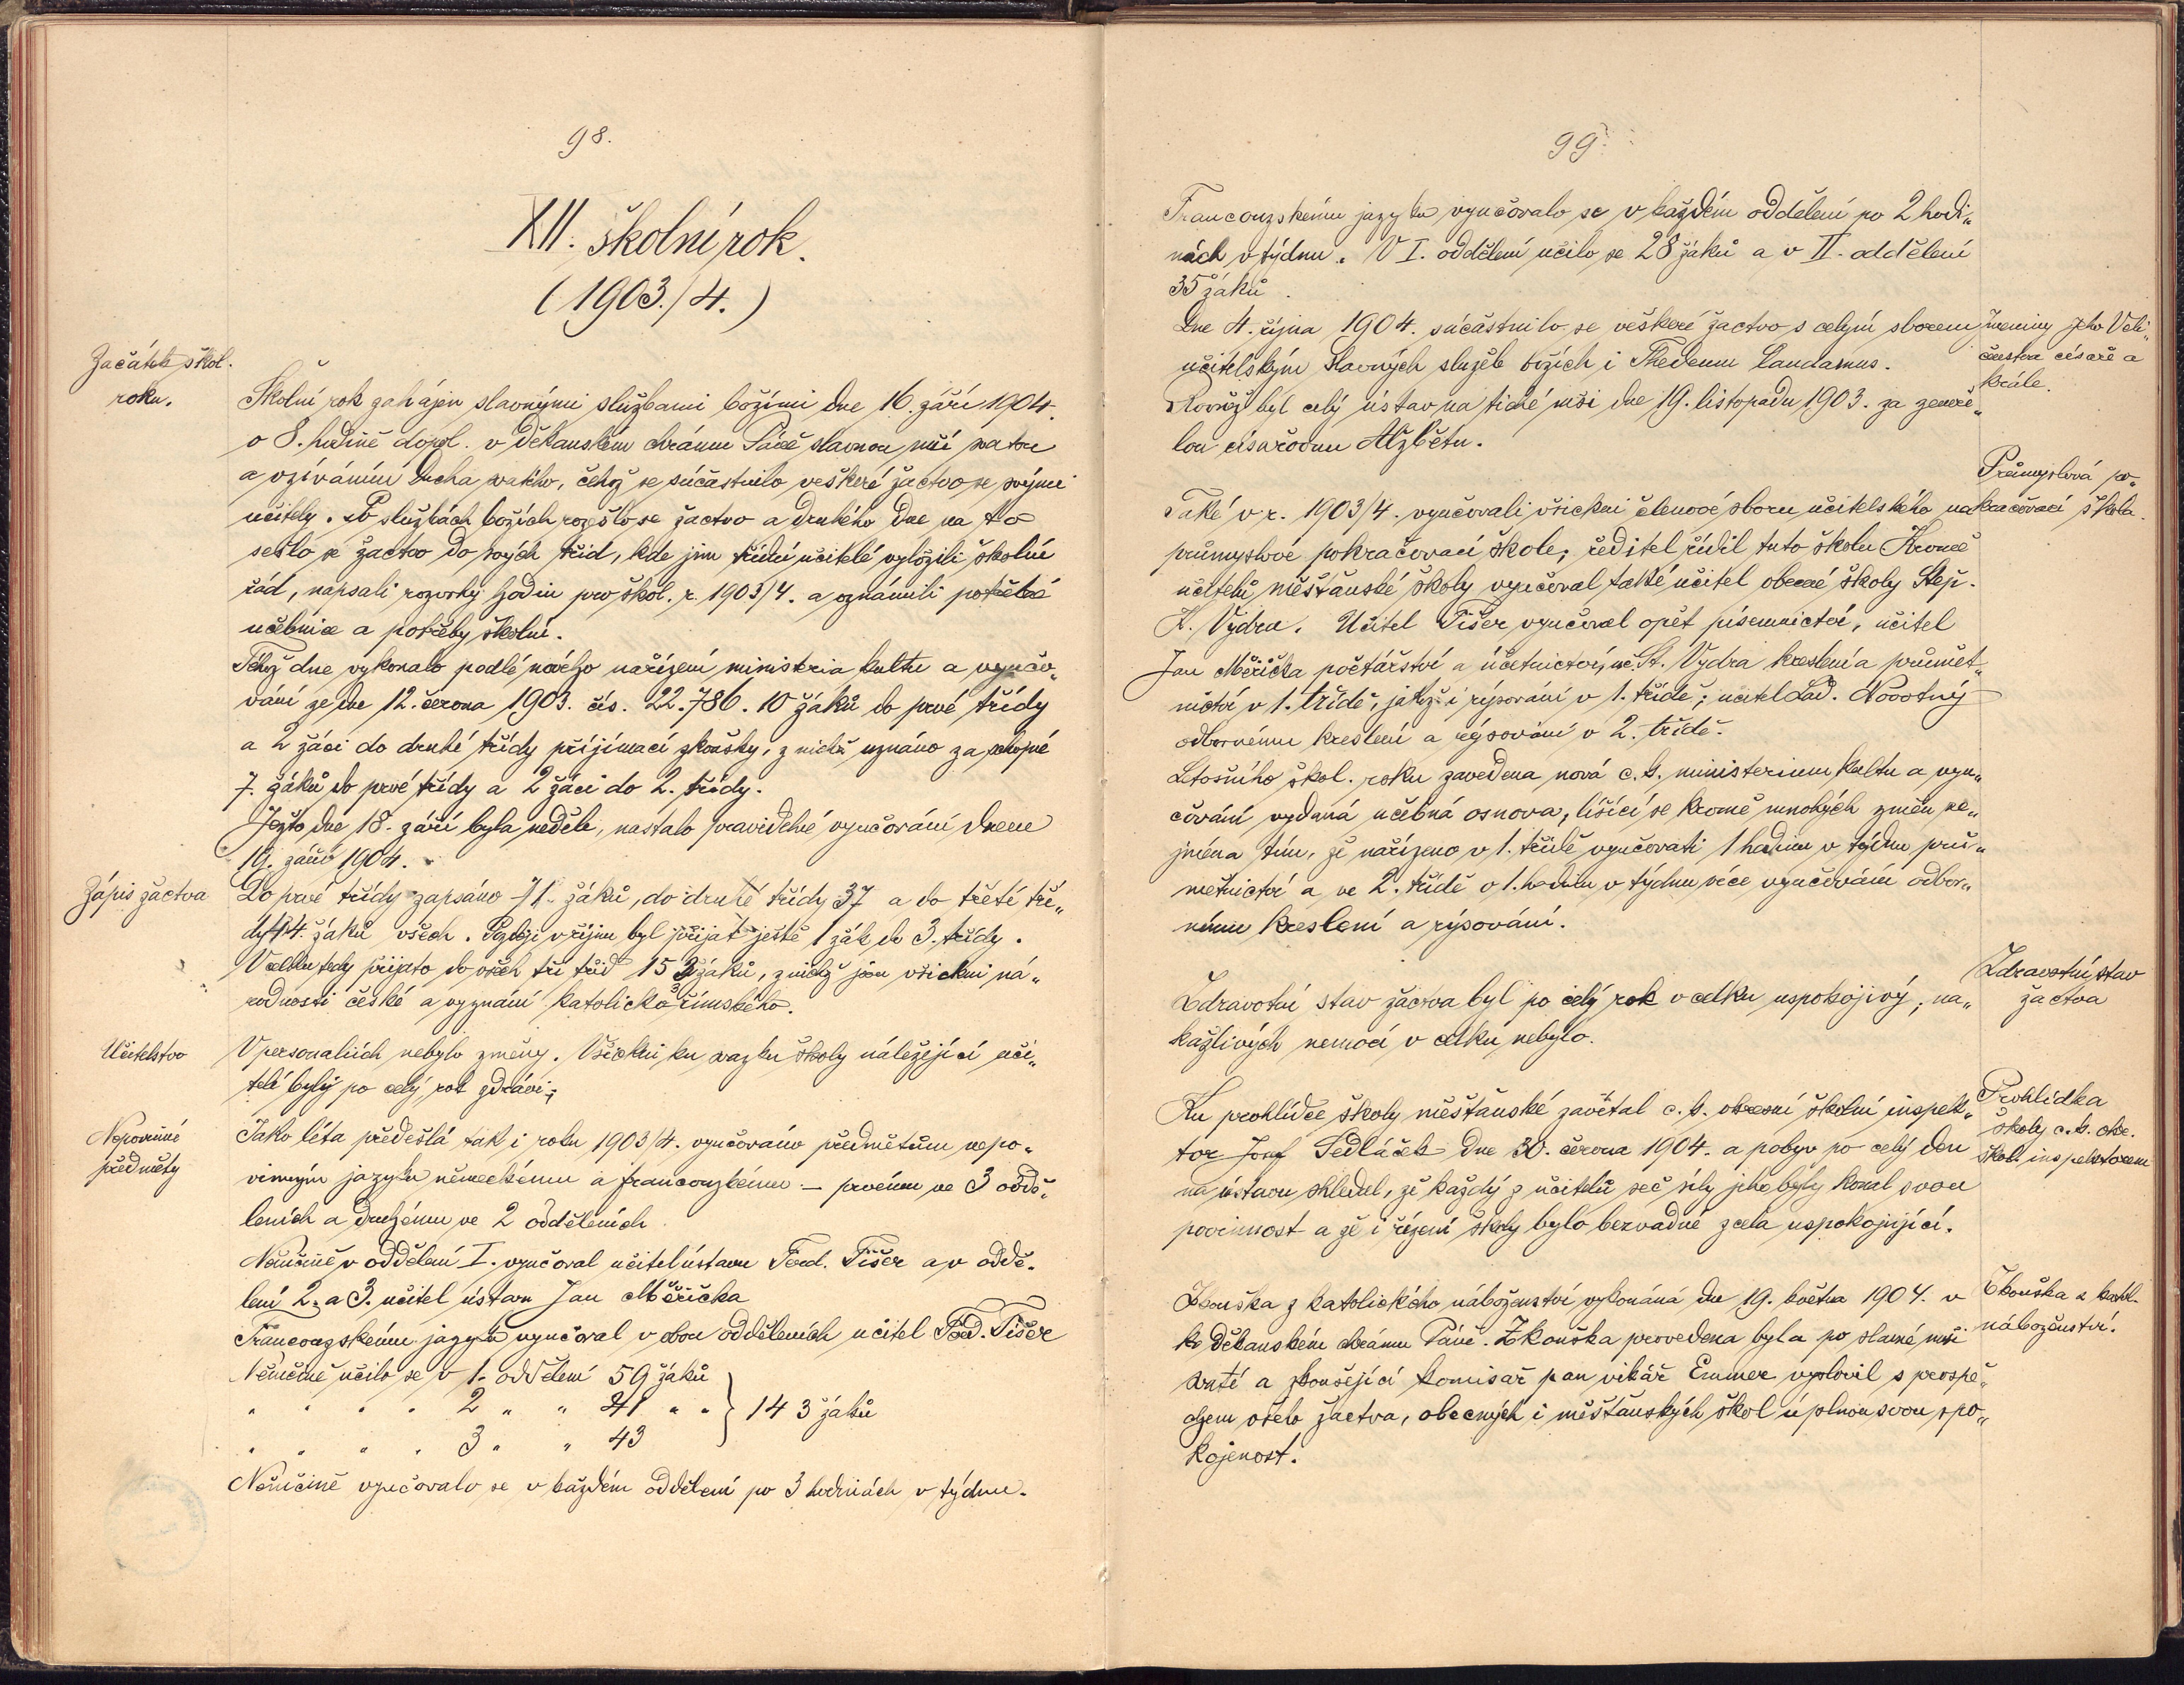 98.
XII. školní rok.
(1903./4.)
Začátek škol.
roku.
Školní rok zahájen slavnými službami božími dne 16. září 1904.
o 8. hodině dopol. v děkanském chrámu Páně slavnou mší svatou
a vzýváním Ducha svatého, čehož se súčastnilo veškeré žactvo se svými
učitely. Po službách božích rozešlo se žactvo a druhého dne na to
sešlo se žactvo do svých tříd, kde jim třídní učitelé vyložili školní
řád, napsali rozvrhy hodin pro škol. r. 1903/4. a oznámili potřebné
učebnice a potřeby školní.
Téhož dne vykonalo podlé nového nařízení ministeria kultu a vyučo„
vání ze dne 12. června 1903. čís. 22.786. 10 žáků do prvé třídy
a 2 žáci do druhé třídy přijímací zkoušky, z nichž uznáno za schopné
7. žáků do prvé třídy a 2 žáci do 2. třídy.
Ježto dne 18. září byla neděle, nastalo pravidelné vyučování dnem
19. září 1904.
Zápis žactva
Do prvé třídy zapsáno 71. žáků, do druhé třídy 37 a do třetí tří„
dy 44. žáků všech. Později v říjnu byl přijat ještě 1 žák do 3. třídy.
V celku tedy přijato do všech tří tříd 153 žáků, z nichž jsou všickni ná„
rodnosti české a vyznání katolicko římského.
Učitelstvo
V personaliích nebylo změny. Všickni ku svazku školy náležející uči„
telé byly po celý rok zdrávi;
Nepovinné
předměty
Jako léta předešlá tak i roku 1903/4. vyučováno předmětům nepo„
vinným jazyku německému a francouzskému – prvému ve 3 oddě„
leních a druhému ve 2 odděleních
Němčině v oddělení I. vyučoval učitel ústavu Ferd. Tišer a v oddě„
lení 2. a 3. učitel ústavu Jan Měřička
Francouzskému jazyku vyučoval v obou odděleních učitel Ferd. Tišer
Němčině učilo se v 1. oddělení 59 žáků
" " " " 2 " " 41 " " } 143 žáků
" " " " 3 " " 43
Němčině vyučovalo se v každém oddělení po 3 hodinách v týdnu.
99.
Francouzskému jazyku vyučovalo se v každém oddělení po 2 hodi„
nách v týdnu. V I. oddělení učilo se 28 žáků a v II. oddělení
35 žáků.
Dne 4. října 1904. súčastnilo se veškeré žactvo s celým sborem
učitelským slavných služeb božích i Thedeum laudamus.
Rovněž byl celý ústav na tiché mši dne 19. listopadu 1903. za zemře„
lou císařovnu Alžbětu.
Jmeniny Jeho Veli„
čenstva císaře a
krále.
Průmyslová po„
kračovací škola.
Také v r. 1903/4. vyučovali všickni členové sboru učitelského na
průmyslové pokračovací škole; ředitel řídil tuto školu Kromě
učitelů měšťanské školy vyučoval také učitel obecné školy Štěp.
K. Vydra. Učitel Tišer vyučoval opět písemnictví, učitel
Jan Měřička počtářství a účetnictví, uč. St. Vydra kreslení a průmět„
nictví v 1. třídě, jakož i rýsování v 1. třídě; učitel Lad. Novotný
odbornému kreslení a rýsování v 2. třídě.
Letošního škol. roku zavedena nová c. k. ministeriem kultu a vyu„
čování vydaná učebná osnova, lišící se kromě mnohých změn ze„
jména tím, že nařízeno v 1. třídě vyučovati 1 hodinu v týdnu prů„
mětnictví a ve 2. třídě o 1. hodinu v týdnu více vyučování odbor„
nému kreslení a rýsování.
Zdravotní stav
žactva
Zdravotní stav žactva byl po celý rok v celku uspokojivý; na„
kažlivých nemocí v celku nebylo.
Prohlídka
školy c. k. okr.
škol. inspektorem
Ku prohlídce školy měšťanské zavítal c. k. okresní školní inspek„
tor Josef Sedláček dne 30. června 1904. a pobyv po celý den
na ústavu shledal, že každý z učitelů seč síly jeho byly konal svou
povinnost a že i řízení školy bylo bezvadné zcela uspokojující.
Zkouška z kathl.
náboženství.
Zkouška z katolického náboženství vykonána dne 19. května 1904. v
děkanském chrámu Páně. Zkouška provedena byla po slavné mši
svaté a zkoušející komisař pan vikář Emmer vyslovil s prospě„
chem všeho žactva, obecných i měšťanských škol úplnou svou spo„
kojenost.